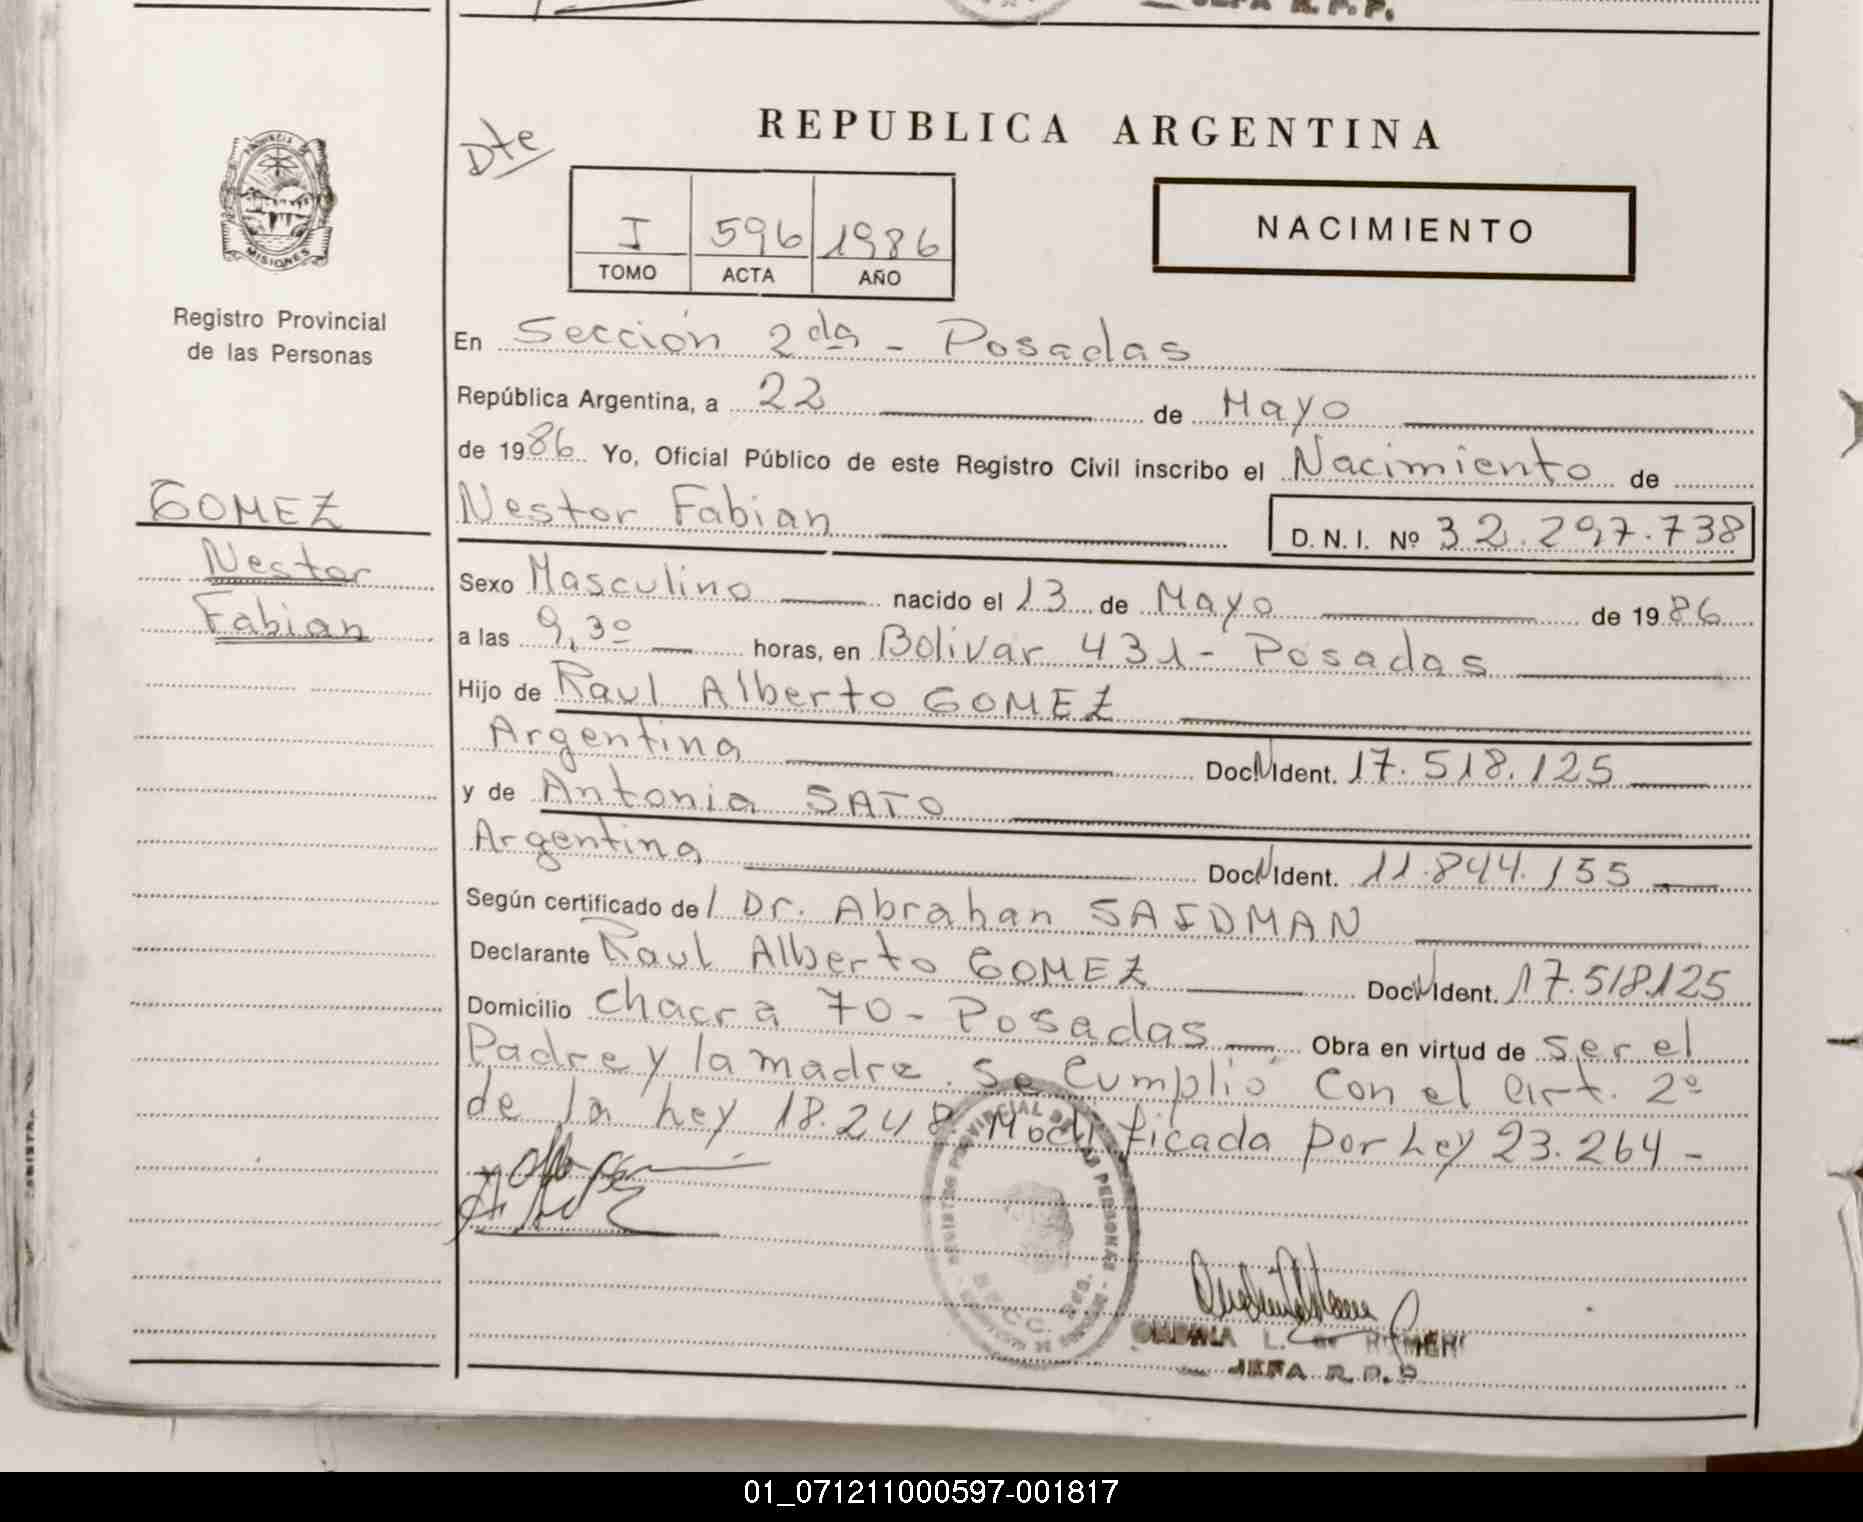 JEFA R. P. P.
REPUBLICA ARGENTINA
Dte
PROVINCIA DE
MISIONES
I 596 1986
TOMO ACTA AÑO
NACIMIENTO
Registro Provincial
de las Personas
GOMEZ
Nestor
Fabian
En Sección 2da - Posadas
República Argentina, a 22 de Mayo
de 1986 Yo, Oficial Público de este Registro Civil inscribo el Nacimiento de
Nestor Fabian D. N. I. Nº 32.297.738
Sexo Masculino nacido el 13 de Mayo de 1986
a las 9,30 horas, en Bolivar 431 - Posadas
Hijo de Raul Alberto GOMEZ
Argentina Doc N Ident. 17.518.125
y de Antonia SATO
Argentina Doc N Ident. 11.844.155
Según certificado del Dr. Abrahan SAIDMAN
Declarante Raul Alberto GOMEZ Doc N Ident. 17.518.125
Domicilio Chacra 70 - Posadas Obra en virtud de ser el
Padre y la madre. Se Cumplió Con el Art. 2º
de la Ley 18.248 Modificada por Ley 23.264 -
PROVINCIAL DE LAS PERSONAS
JEFA R. P. P.
01_071211000597-001817